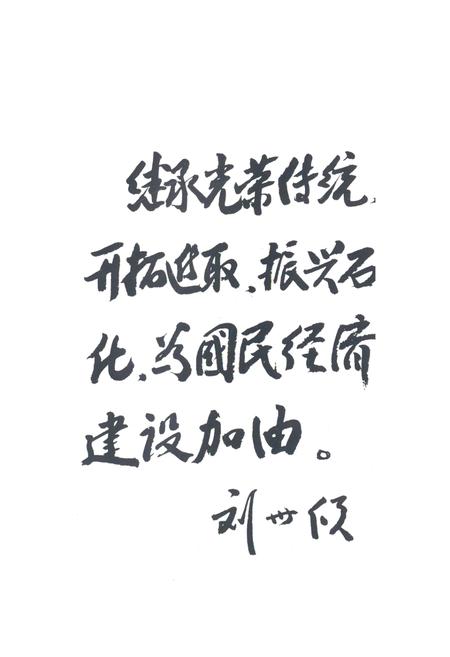 继承光荣传统、
开拓进取、振兴石
化、为國民经济
建设加油。
刘世